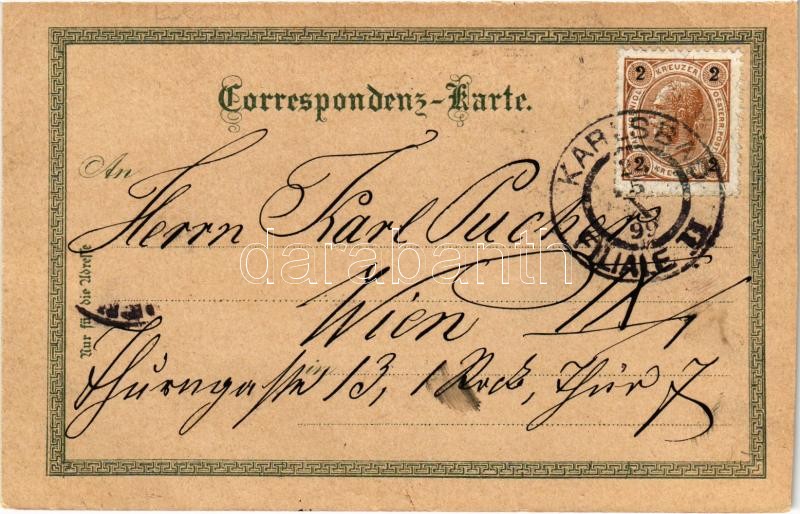 Correspondenz-Karte.
2 KREUZER 2
OESTERR. POST
2 2
KARLSBAD
99
FILIALE II
An
Herrn Karl Pucher
Wien IX/1
in
Thurngasse 13, 1 Stock, Thür 7
Nur für die Adresse
darabanth